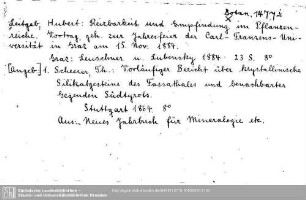 Botan. 1477i
Leitgeb, Hubert: Reizbarkeit und Empfindung im Pflanzen-
reiche, Vortrag, geh. zur Jahresfeier der Carl-Franzens-Uni-
versität in Graz am 15. Nov. 1884.
Graz: Leuschner u. Lubensky 1884. 23 S. 8°
[Angeb:] 1. Scheerer, Th.: Vorläufiger Bericht über krystallinische
Silikatgesteine des Fassathales und benachbarter
Gegenden Südtyrols.
Stuttgart 1864. 8°
Aus: Neues Jahrbuch für Mineralogie etc.